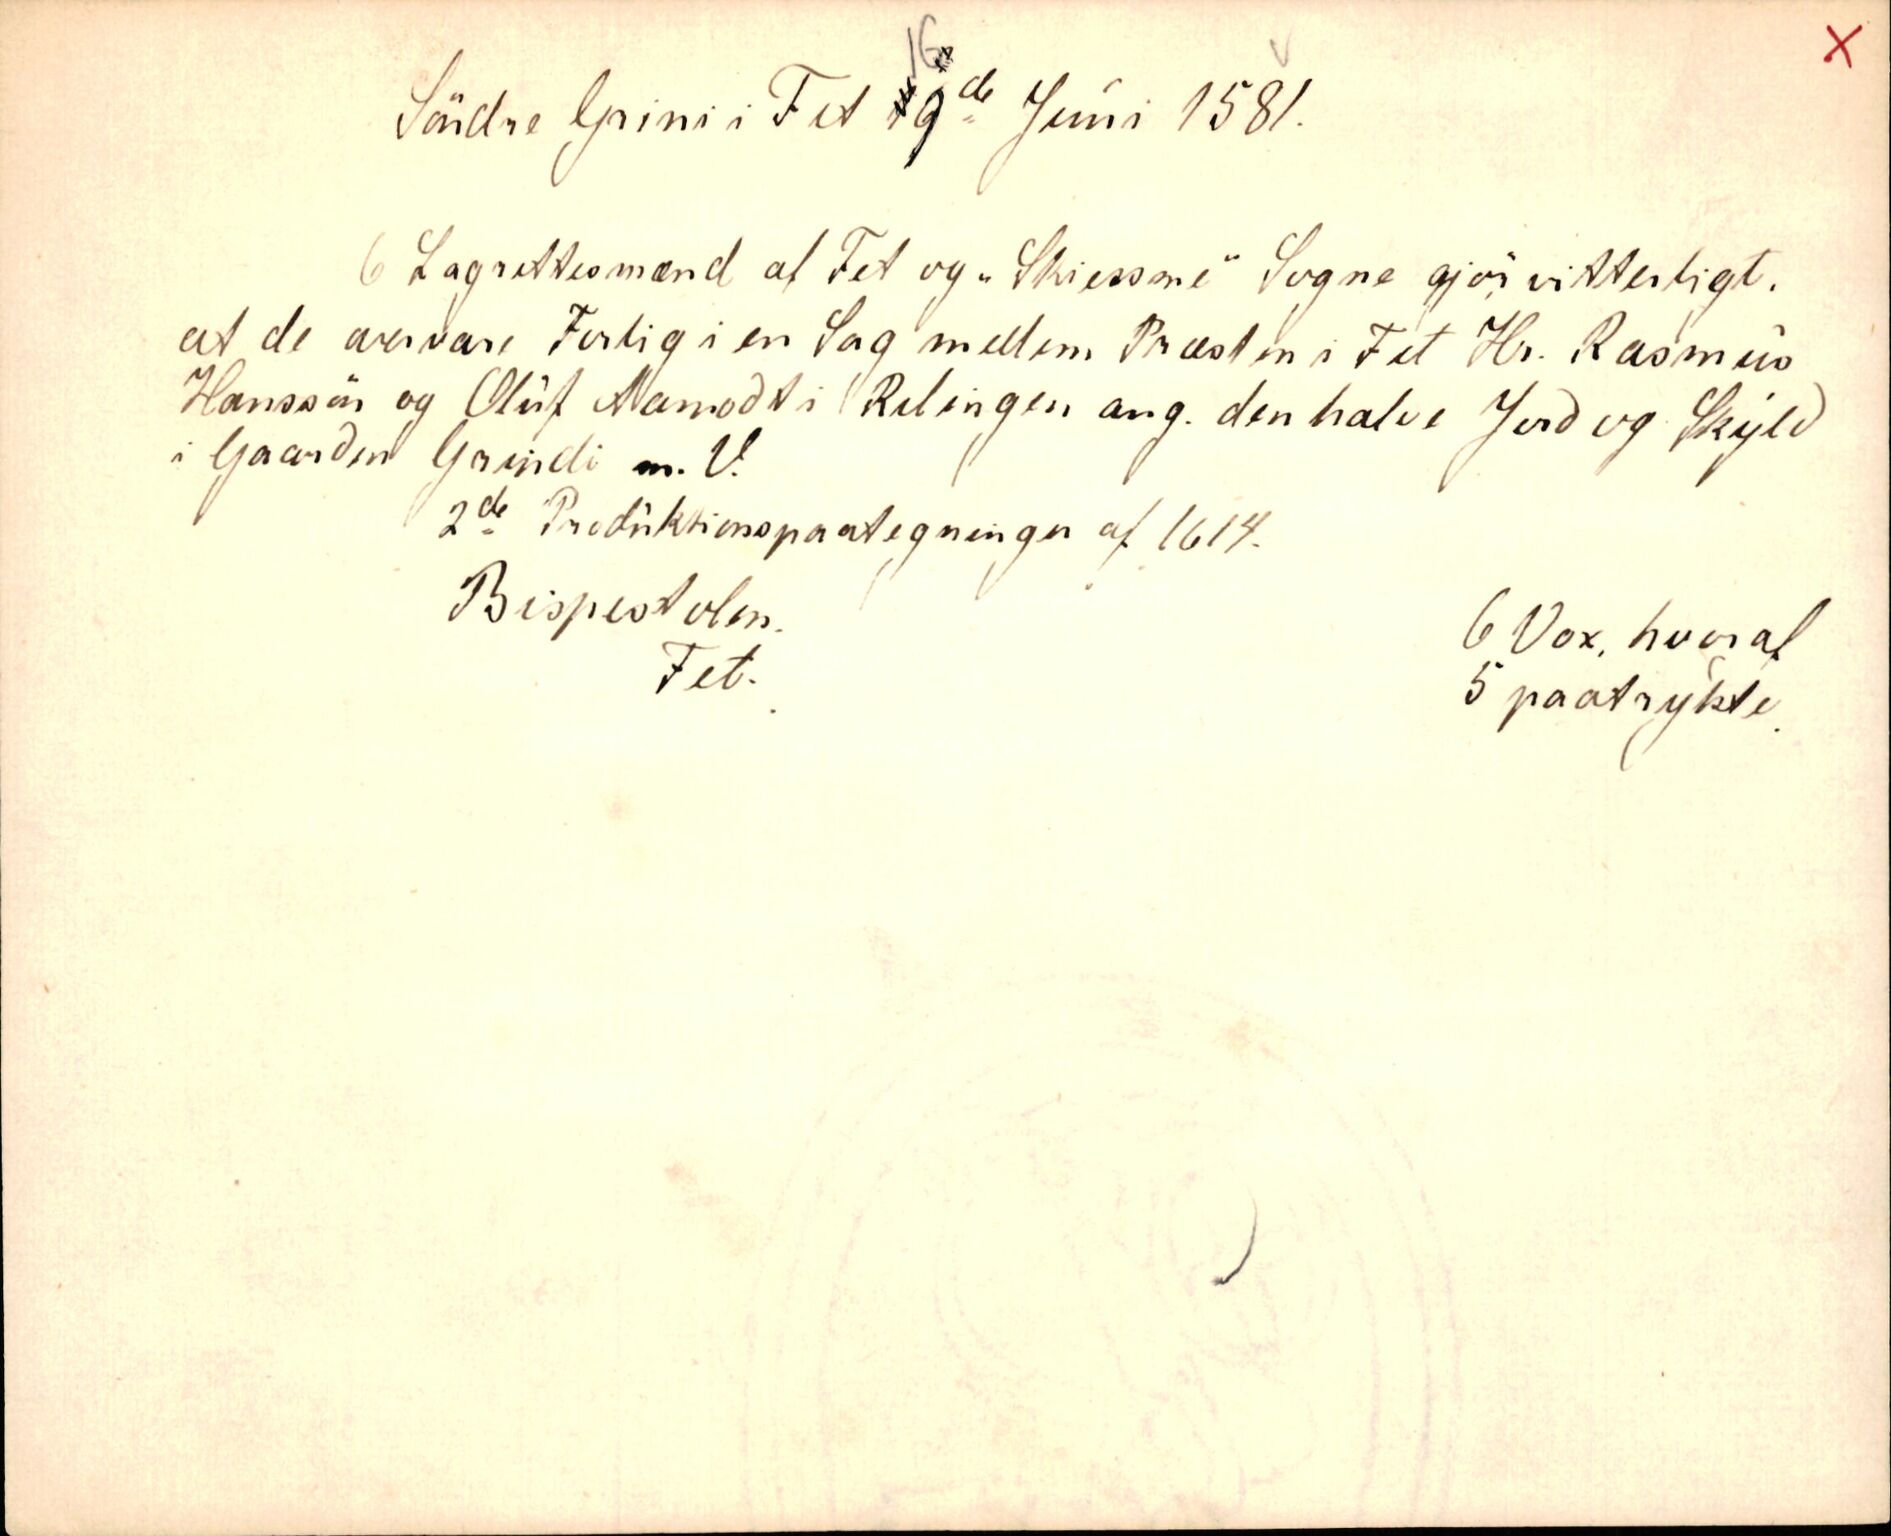 Söndre Grini i Fet 16 9de Juni 1581. X
6 Lagrettesmænd af Fet og "Skiessme" Sogne gjör vitterligt,
at de overvare Forlig i en Sag mellem Præsten i Fet Hr. Rasmus
Hanssön og Oluf Aamodt i Relingen ang. den halve Jord og Skyld
i Gaarden Grindi m. V.
2de Produktionspaategninger af 1614.
Bispestolen.
Fet.
6 Vox, hvoraf
5 paatrykte.